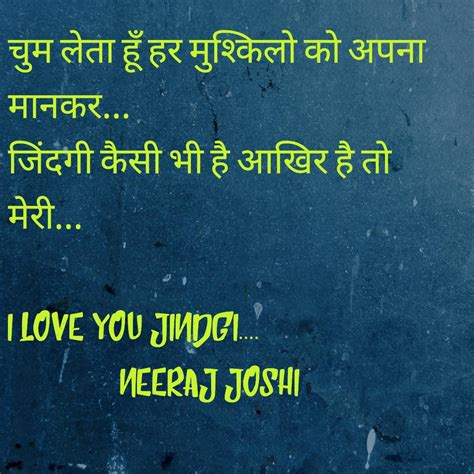 चुम लेता हूँ हर मुश्किलो को अपना
मानकर...
जिंदगी कैसी भी है आखिर है तो
मेरी...
I LOVE YOU JINDGI....
NEERAJ JOSHI